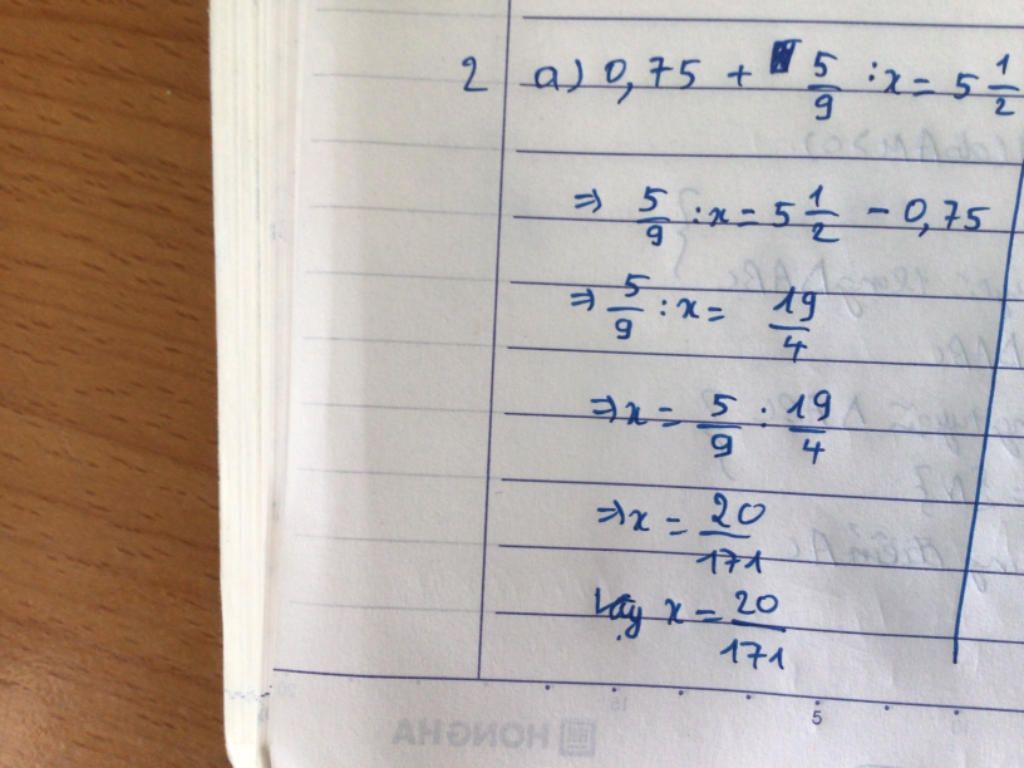 2 a) 0,75 + 5/9 : x = 5 1/2
⇒ 5/9 : x = 5 1/2 - 0,75
⇒ 5/9 : x = 19/4
⇒ x = 5/9 : 19/4
⇒ x = 20/171
Vậy x = 20/171
5
HONG HA